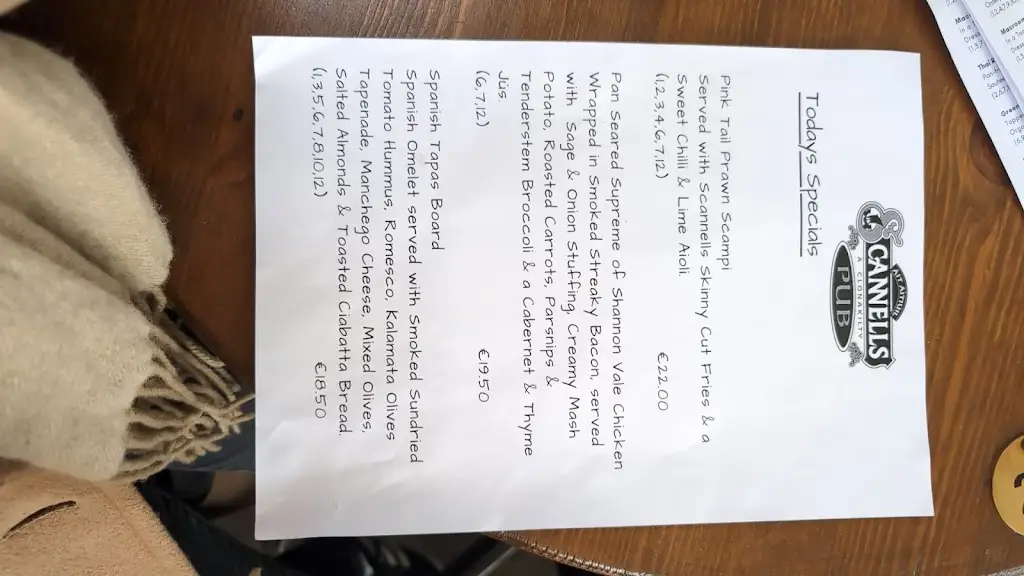 SCANNELLS
A CLONAKILTY
PUB
Todays Specials
Pink Tail Prawn Scampi
Served with Scannells Skinny Cut Fries & a
Sweet Chilli & Lime Aioli.
(1,2,3,4,6,7,12) €22.00
Pan Seared Supreme of Shannon Vale Chicken
Wrapped in Smoked Streaky Bacon, served
with Sage & Onion Stuffing, Creamy Mash
Potato, Roasted Carrots, Parsnips &
Tenderstem Broccoli & a Cabernet & Thyme
Jus.
(6,7,12) €19.50
Spanish Tapas Board
Spanish Omelet served with Smoked Sundried
Tomato Hummus, Romesco, Kalamata Olives
Tapenade, Manchego Cheese, Mixed Olives,
Salted Almonds & Toasted Ciabatta Bread.
(1,3,5,6,7,8,10,12) €18.50